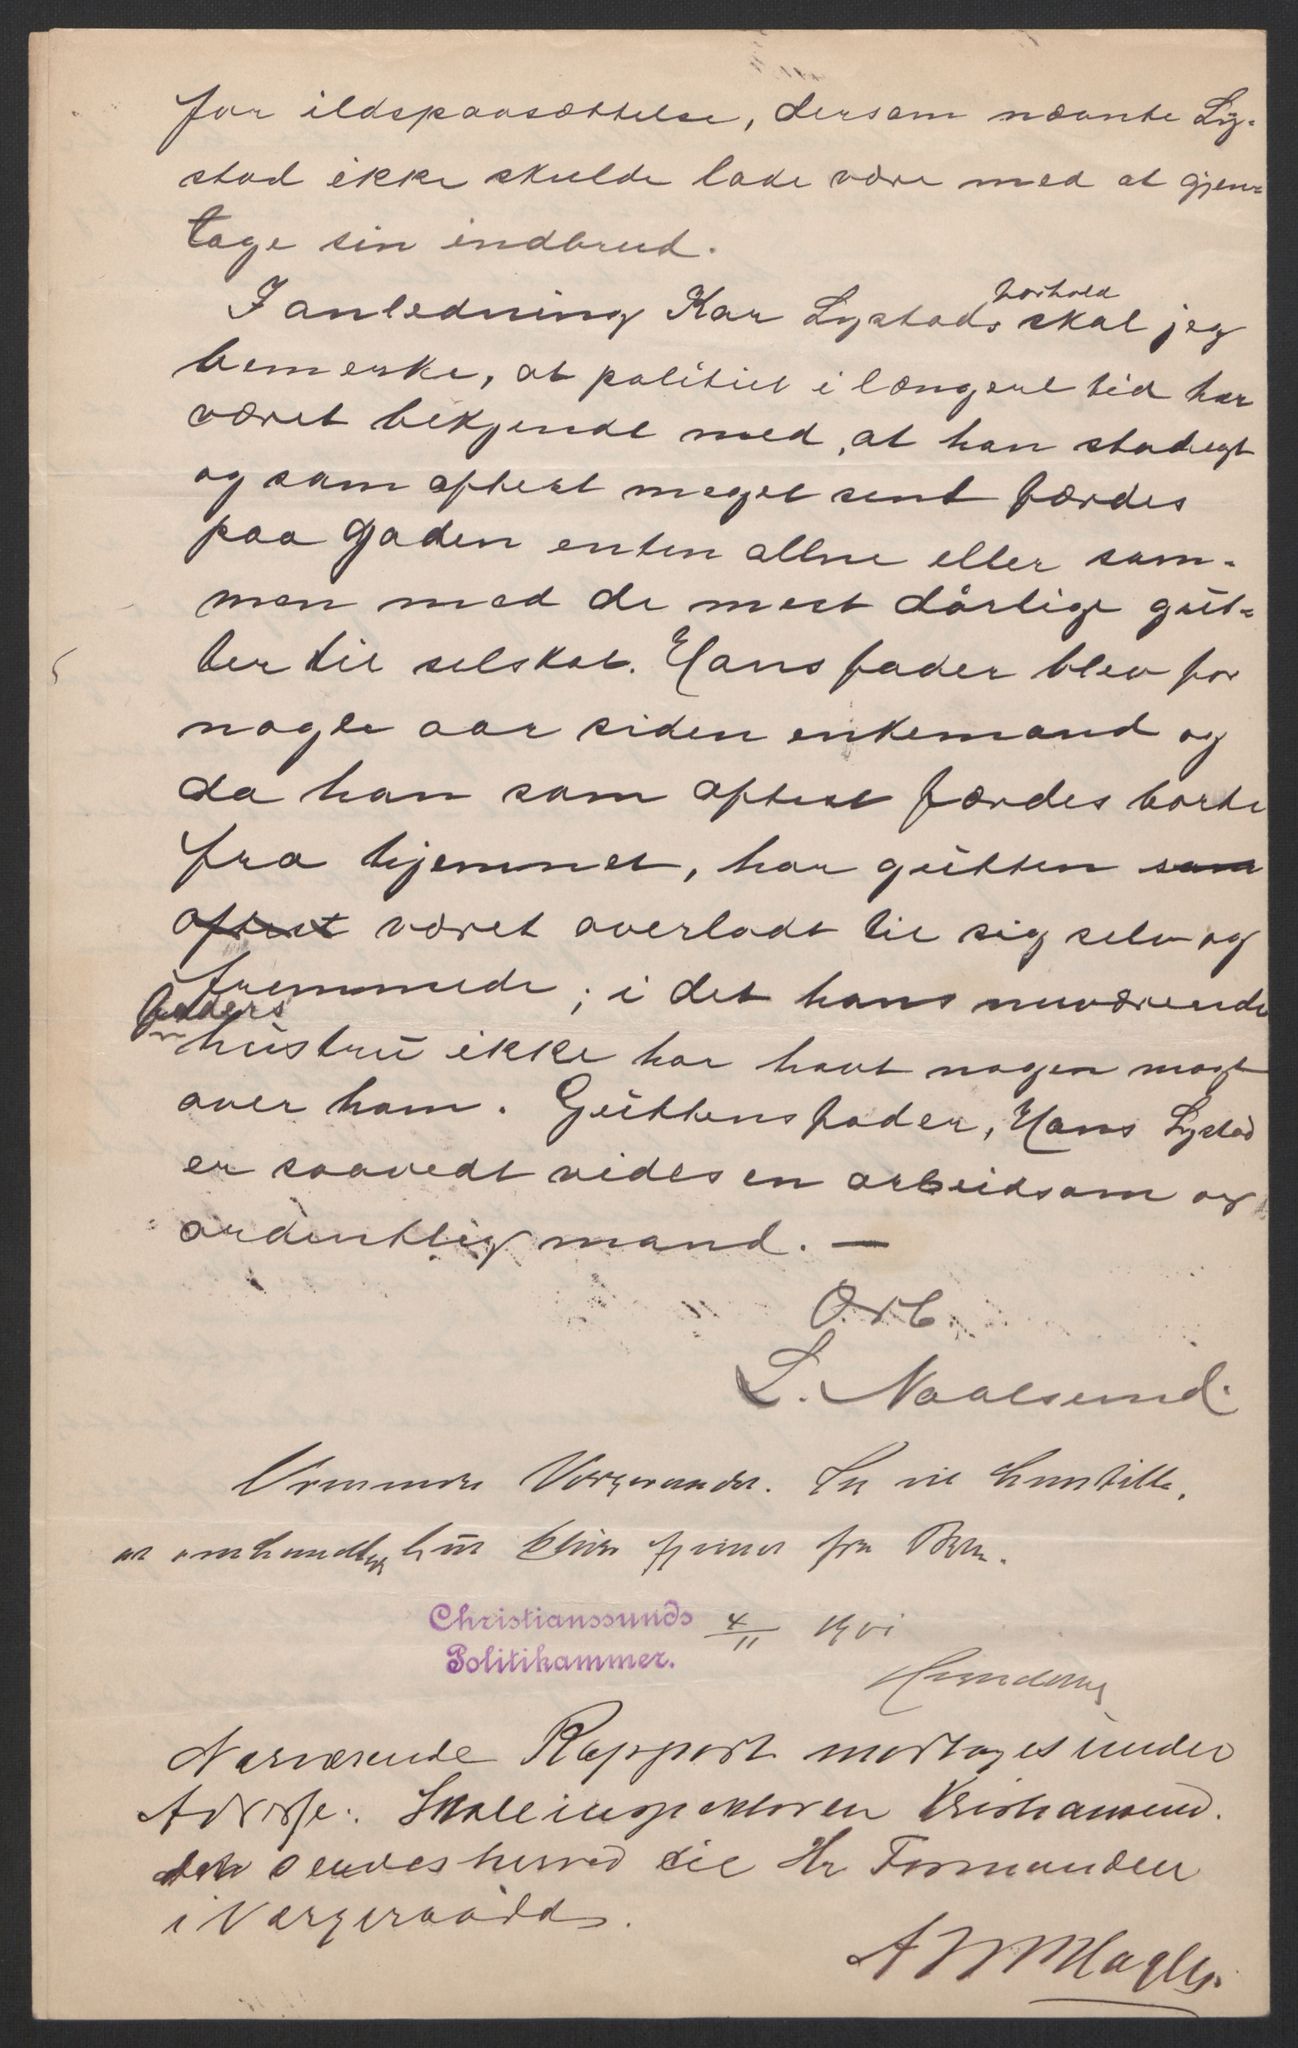 for ildspaasættelse, dersom nævnte Ly-
stad ikke skulde lade være med at gjen-
tage sin indbrud.
I anledning Kar Lystads forhold skal jeg
bemerke, at politiet i længere tid har
været bekjendt med, at han stadigt
og som oftest meget sent færdes
paa gaden enten allne eller sam-
men med de mest dårlige gut-
ter til selskab. Hans fader blev for
nogle aar siden enkemand og
da han som oftest færdes borte
fra hjemmet, har gutten som
oftest været overladt til sig selv og
fremmede; i det hans nuværende
faders
hustru ikke har havt nogen magt
over ham. Guttens fader, Hans Lystad
er saavedt vides en arbeidsom og
ordentlig mand. —
Ærb.
L. Naalsund.
Vergeraadet. vil henstille,
at omhandlede bliver fjernet fra Byen.
Christianssunds 4/11 1901
Politikammer.
Nærværende Rapport modtoges under
Adresse: Skoleinspektøren Kristiansund.
den sendes herved til Hr Formanden
i Vergeraadet.